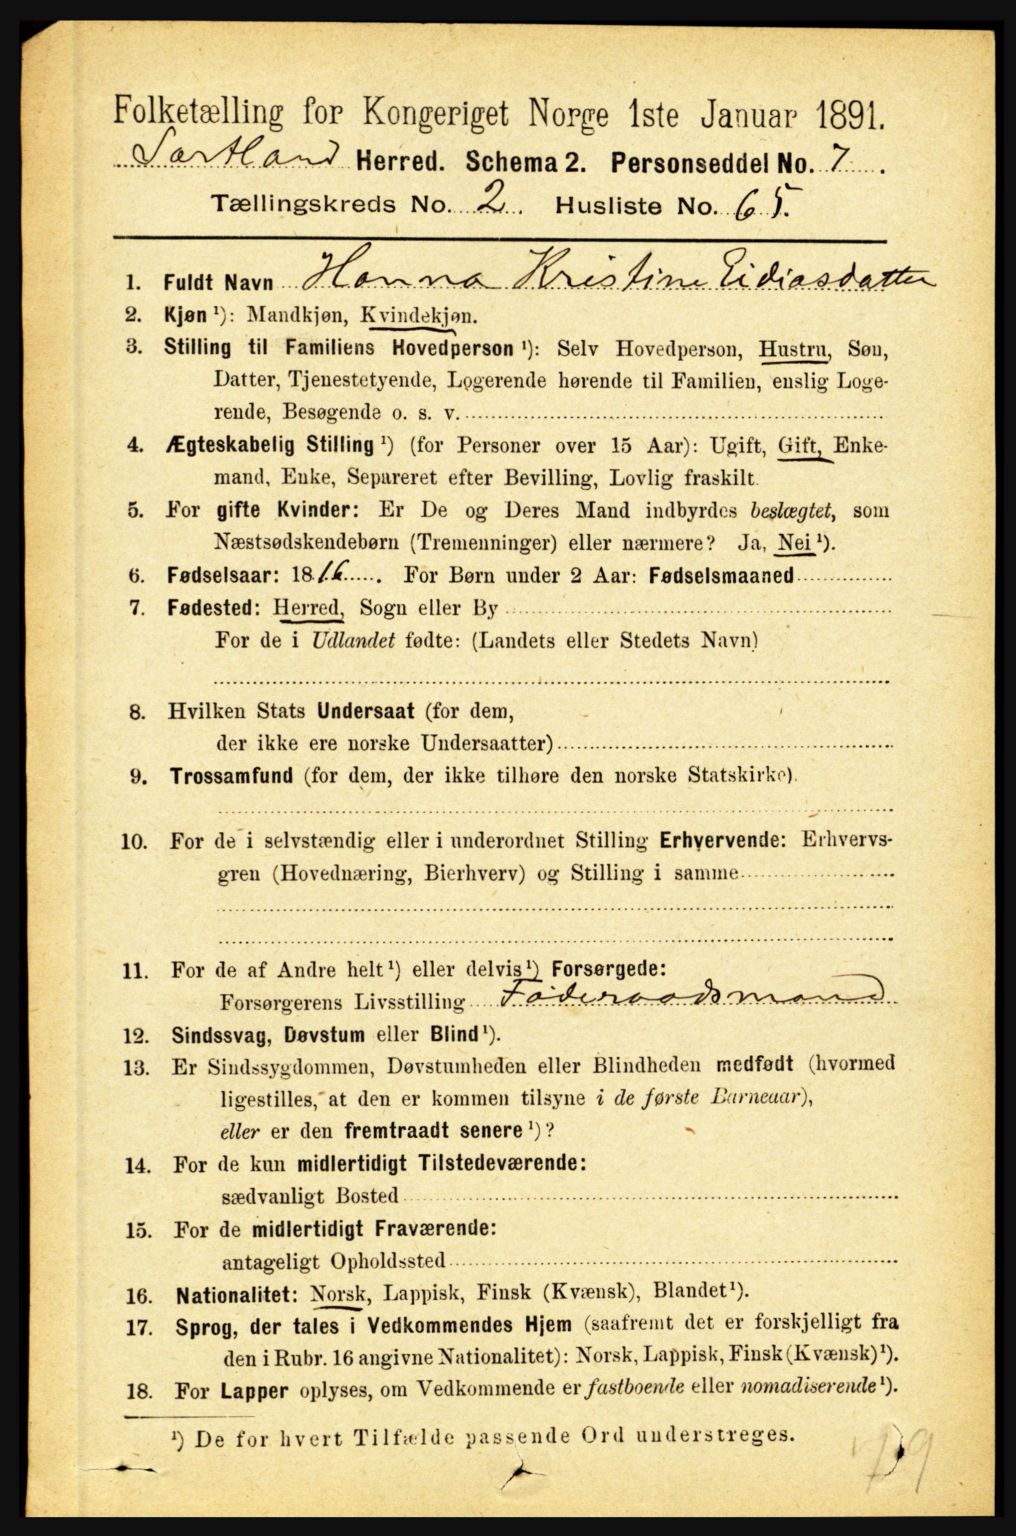 Folketælling for Kongeriget Norge 1ste Januar 1891.
Sortland Herred. Schema 2. Personseddel No. 7.
Tællingskreds No. 2. Husliste No. 65.
1. Fuldt Navn Hanna Kristine Eidiasdatter
2. Kjøn ¹): Mandkjøn, Kvindekjøn.
3. Stilling til Familiens Hovedperson ¹): Selv Hovedperson, Hustru, Søn,
Datter, Tjenestetyende, Logerende hørende til Familien, enslig Loge-
rende, Besøgende o. s. v.
4. Ægteskabelig Stilling ¹) (for Personer over 15 Aar): Ugift, Gift, Enke-
mand, Enke, Separeret efter Bevilling, Lovlig fraskilt.
5. For gifte Kvinder: Er De og Deres Mand indbyrdes beslægtet, som
Næstsødskendebørn (Tremenninger) eller nærmere? Ja, Nei ¹).
6. Fødselsaar: 1816. For Børn under 2 Aar: Fødselsmaaned
7. Fødested: Herred, Sogn eller By
For de i Udlandet fødte: (Landets eller Stedets Navn)
8. Hvilken Stats Undersaat (for dem,
der ikke ere norske Undersaatter)
9. Trossamfund (for dem, der ikke tilhøre den norske Statskirke).
10. For de i selvstændig eller i underordnet Stilling Erhvervende: Erhvervs-
gren (Hovednæring, Bierhverv) og Stilling i samme
11. For de af Andre helt ¹) eller delvis ¹) Forsørgede:
Forsørgerens Livsstilling Føderaadsmand
12. Sindssvag, Døvstum eller Blind ¹).
13. Er Sindssygdommen, Døvstumheden eller Blindheden medfødt (hvormed
ligestilles, at den er kommen tilsyne i de første Barneaar),
eller er den fremtraadt senere ¹)?
14. For de kun midlertidigt Tilstedeværende:
sædvanligt Bosted
15. For de midlertidigt Fraværende:
antageligt Opholdssted
16. Nationalitet: Norsk, Lappisk, Finsk (Kvænsk), Blandet ¹).
17. Sprog, der tales i Vedkommendes Hjem (saafremt det er forskjelligt fra
den i Rubr. 16 angivne Nationalitet): Norsk, Lappisk, Finsk (Kvænsk) ¹).
18. For Lapper oplyses, om Vedkommende er fastboende eller nomadiserende ¹).
¹) De for hvert Tilfælde passende Ord understreges.